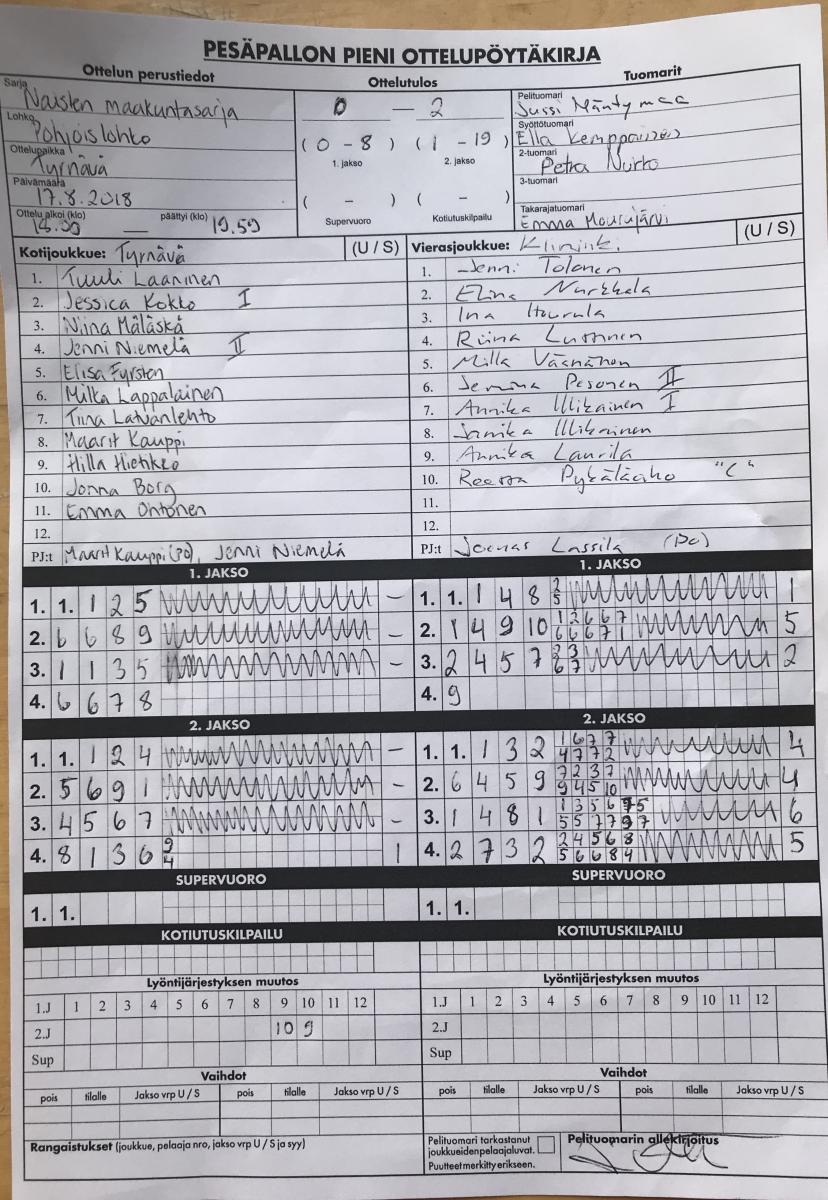 PESÄPALLON PIENI OTTELUPÖYTÄKIRJA
Ottelun perustiedot Ottelutulos Tuomarit
Sarja Naisten maakuntasarja
Lohko Pohjoislohko
Ottelupaikka Tyrnävä
Päivämäärä 17.8.2018
Ottelu alkoi (klo) 18.00 — päättyi (klo) 19.59
0 — 2
(0 - 8) (1 - 19)
1. jakso 2. jakso
( - ) ( - )
Supervuoro Kotiutuskilpailu
Pelituomari Jussi Mäntymaa
Syöttötuomari Ella Kemppainen
2-tuomari Petra Nurro
3-tuomari
Takarajatuomari Emma Mourujärvi
Kotijoukkue: Tyrnävä (U / S)
1. Tuuli Laaninen
2. Jessica Kokko I
3. Niina Mäläskä
4. Jenni Niemelä II
5. Elisa Fyrsten
6. Milka Lappalainen
7. Tiina Latvanlehto
8. Maarit Kauppi
9. Hilla Hietikko
10. Jonna Borg
11. Emma Ohtonen
12.
PJ:t Maarit Kauppi (PO), Jenni Niemelä
Vierasjoukkue: (U / S)
1. Jenni Tolonen
2. Elina Nurkkala
3. Ina
4. Riina Lusonen
5. Milla Väänänen
6. Jemina Pesonen II
7. Annika Ullikainen I
8. Janika Ullikainen
9. Annika Laurila
10. Reessa Pykäläaho "C"
11.
12.
PJ:t Joonas Lassila (PO)
1. JAKSO
1. 1. 1 2 5 –
2. 6 6 8 9 –
3. 1 1 3 5 –
4. 6 6 7 8
1. JAKSO
1. 1. 1 4 8 2 5 1
2. 1 4 9 10 1 2 6 6 7 6 6 6 7 1 5
3. 2 4 5 7 2 3 6 7 2
4. 9
2. JAKSO
1. 1. 1 2 4 –
2. 5 6 9 1 –
3. 4 5 6 7 –
4. 8 1 3 6 9 4 1
2. JAKSO
1. 1. 1 3 2 1 6 7 7 4 7 7 2 4
2. 6 4 5 9 7 2 3 7 9 4 5 10 4
3. 1 4 8 1 1 3 5 6 7 5 5 5 7 7 9 7 6
4. 2 7 3 2 2 4 5 6 8 5 6 6 8 4 5
SUPERVUORO SUPERVUORO
1. 1. 1. 1.
KOTIUTUSKILPAILU KOTIUTUSKILPAILU
Lyöntijärjestyksen muutos Lyöntijärjestyksen muutos
1.J 1 2 3 4 5 6 7 8 9 10 11 12 1.J 1 2 3 4 5 6 7 8 9 10 11 12
2.J 10 9 2.J
Sup Sup
Vaihdot Vaihdot
pois tilalle Jakso vrp U / S pois tilalle Jakso vrp U / S pois tilalle Jakso vrp U / S pois tilalle Jakso vrp U / S
Rangaistukset (joukkue, pelaaja nro, jakso vrp U / S ja syy)
Pelituomari tarkastanut
joukkueidenpelaajaluvat.
Puutteet merkitty erikseen.
Pelituomarin allekirjoitus